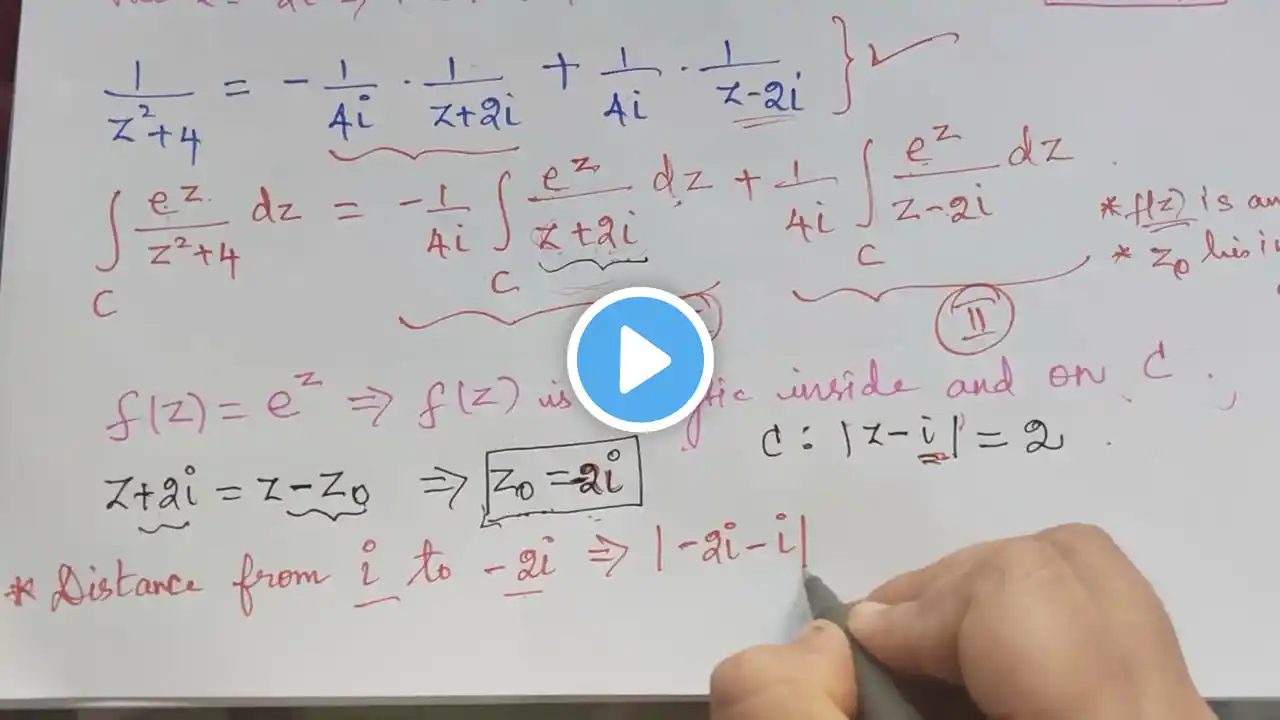 1/(z²+4) = -1/4i · 1/(z+2i) + 1/4i · 1/(z-2i) } ✓
∫_C e^z/(z²+4) dz = -1/4i ∫_C e^z/(z+2i) dz + 1/4i ∫_C e^z/(z-2i) dz
* f(z) is an
* z₀ lies i
II
f(z) = e^z ⇒ f(z) is inside and on C.
z+2i = z-z₀ ⇒ z₀ = -2i C : |z-i| = 2 .
* Distance from i to -2i ⇒ |-2i-i|